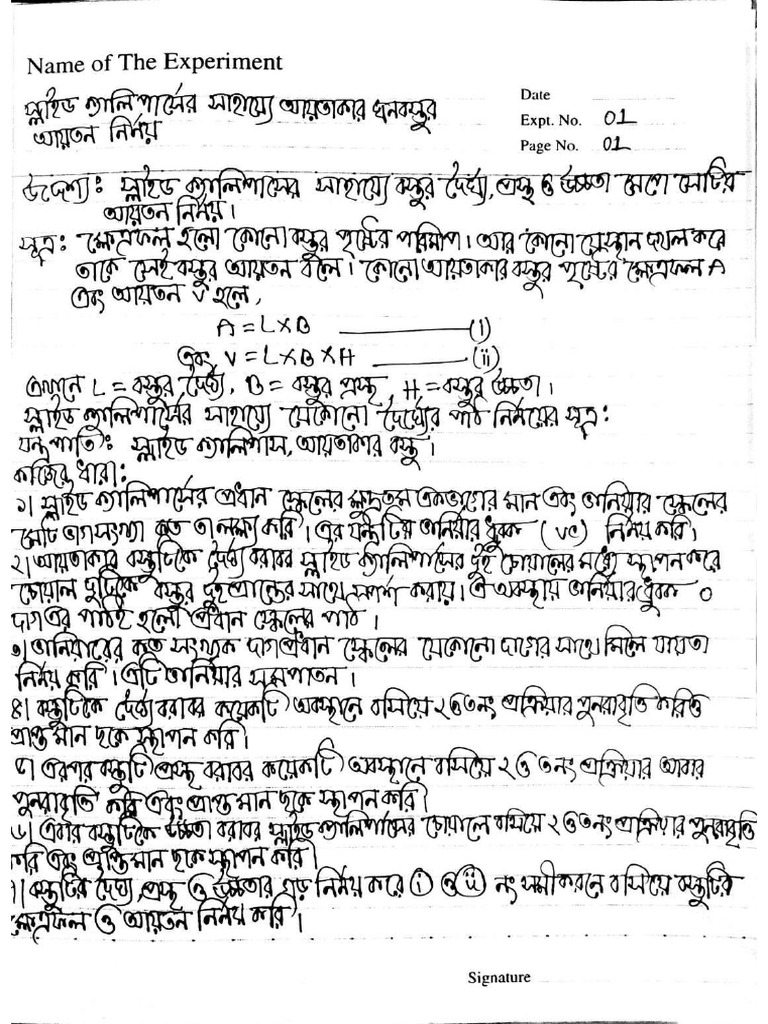 Name of The Experiment
Date
স্লাইড ক্যালিপার্সের সাহায্যে আয়তাকার ঘনবস্তুর
Expt. No. 01
আয়তন নির্ণয়
Page No. 01
উদ্দেশ্য: স্লাইড ক্যালিপার্সের সাহায্যে বস্তুর দৈর্ঘ্য, প্রস্থ ও উচ্চতা মেপে সেটির
আয়তন নির্ণয়।
সূত্র: ক্ষেত্রফল হলো কোনো বস্তুর পৃষ্টের পরিমাপ। আর কোনো যেস্থান দখল করে
তাকে সেই বস্তুর আয়তন বলে। কোনো আয়তাকার বস্তুর পৃষ্টের ক্ষেত্রফল A
এবং আয়তন V হলে,
A = L×B (i)
এবং V = L×B×H (ii)
এখানে L = বস্তুর দৈর্ঘ্য, B = বস্তুর প্রস্থ, H = বস্তুর উচ্চতা।
স্লাইড ক্যালিপার্সের সাহায্যে যেকোনো দৈর্ঘ্যের পাঠ নির্ণয়ের সূত্র:
যন্ত্রপাতি: স্লাইড ক্যালিপাস, আয়তাকার বস্তু।
কাজের ধারা:
১। স্লাইড ক্যালিপার্সের প্রধান স্কেলের ক্ষুদ্রতম একভাগের মান এবং ভার্নিয়ার স্কেলের
মোট ভাগসংখ্যা কত তা লক্ষ্য করি। এর যন্ত্রটির ভার্নিয়ার ধ্রুবক (VC) নির্ণয় করি।
২। আয়তাকার বস্তুটিকে দৈর্ঘ্য বরাবর স্লাইড ক্যালিপার্সের দুই চোয়ালের মধ্যে স্থাপন করে
চোয়াল দুটিকে বস্তুর দুই প্রান্তের সাথে স্পর্শ করায়। এ অবস্থায় ভার্নিয়ার ধ্রুবক 0
দাগ এর পাঠই হলো প্রধান স্কেলের পাঠ।
৩। ভার্নিয়ারের কত সংখ্যক দাগ প্রধান স্কেলের যেকোনো দাগের সাথে মিলে যায় তা
নির্ণয় করি। এটি ভার্নিয়ার সমপাতন।
৪। বস্তুটিকে দৈর্ঘ্য বরাবর কয়েকটি অবস্থানে বসিয়ে ২ ও ৩ নং প্রক্রিয়ার পুনরাবৃত্তি করি ও
প্রাপ্ত মান ছকে স্থাপন করি।
৫। এরপর বস্তুটি প্রস্থ বরাবর কয়েকটি অবস্থানে বসিয়ে ২ ও ৩ নং প্রক্রিয়ার আবার
পুনরাবৃত্তি করি এবং প্রাপ্ত মান ছকে স্থাপন করি।
৬। এবার বস্তুটিকে উচ্চতা বরাবর স্লাইড ক্যালিপার্সের চোয়ালে বসিয়ে ২ ও ৩ নং প্রক্রিয়ার পুনরাবৃত্তি
করি এবং প্রাপ্ত মান ছকে স্থাপন করি।
৭। বস্তুটির দৈর্ঘ্য, প্রস্থ ও উচ্চতার এড় নির্ণয় করে (i) ও (ii) নং সমীকরনে বসিয়ে বস্তুটির
ক্ষেত্রফল ও আয়তন নির্ণয় করি।
Signature